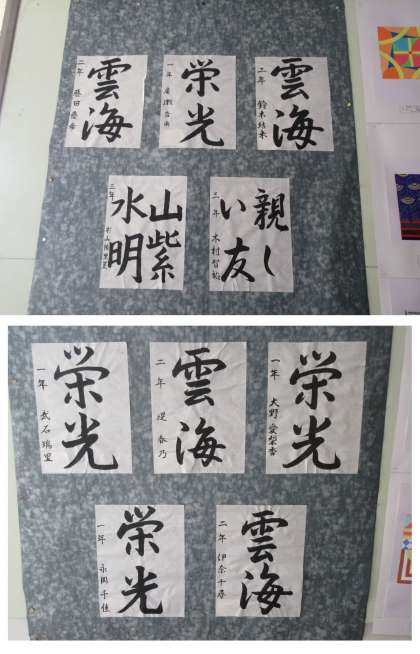 雲海
二年
栄光
一年
雲海
二年 鈴木
山紫
水明
三年
親し
い友
三年 木村智裕
栄光
一年 武石瑞里
雲海
二年 堤 春乃
栄光
一年 大野愛梨香
栄光
一年 永岡千佳
雲海
二年 伊奈千尋